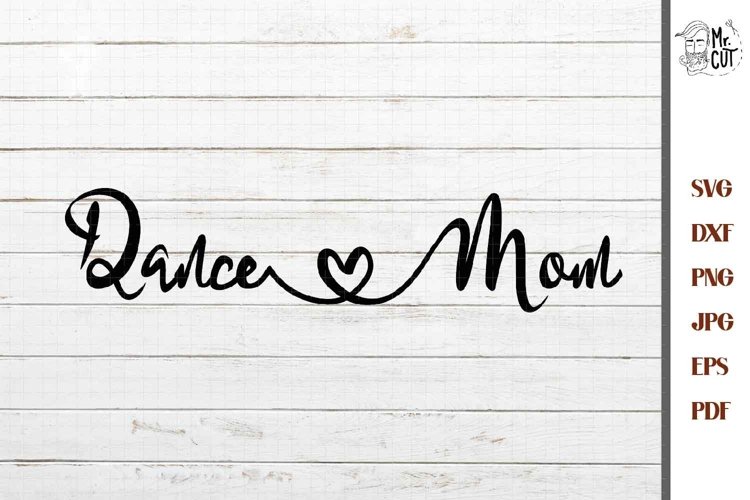 Mr.
CUT
Dance Mom
SVG
DXF
PNG
JPG
EPS
PDF